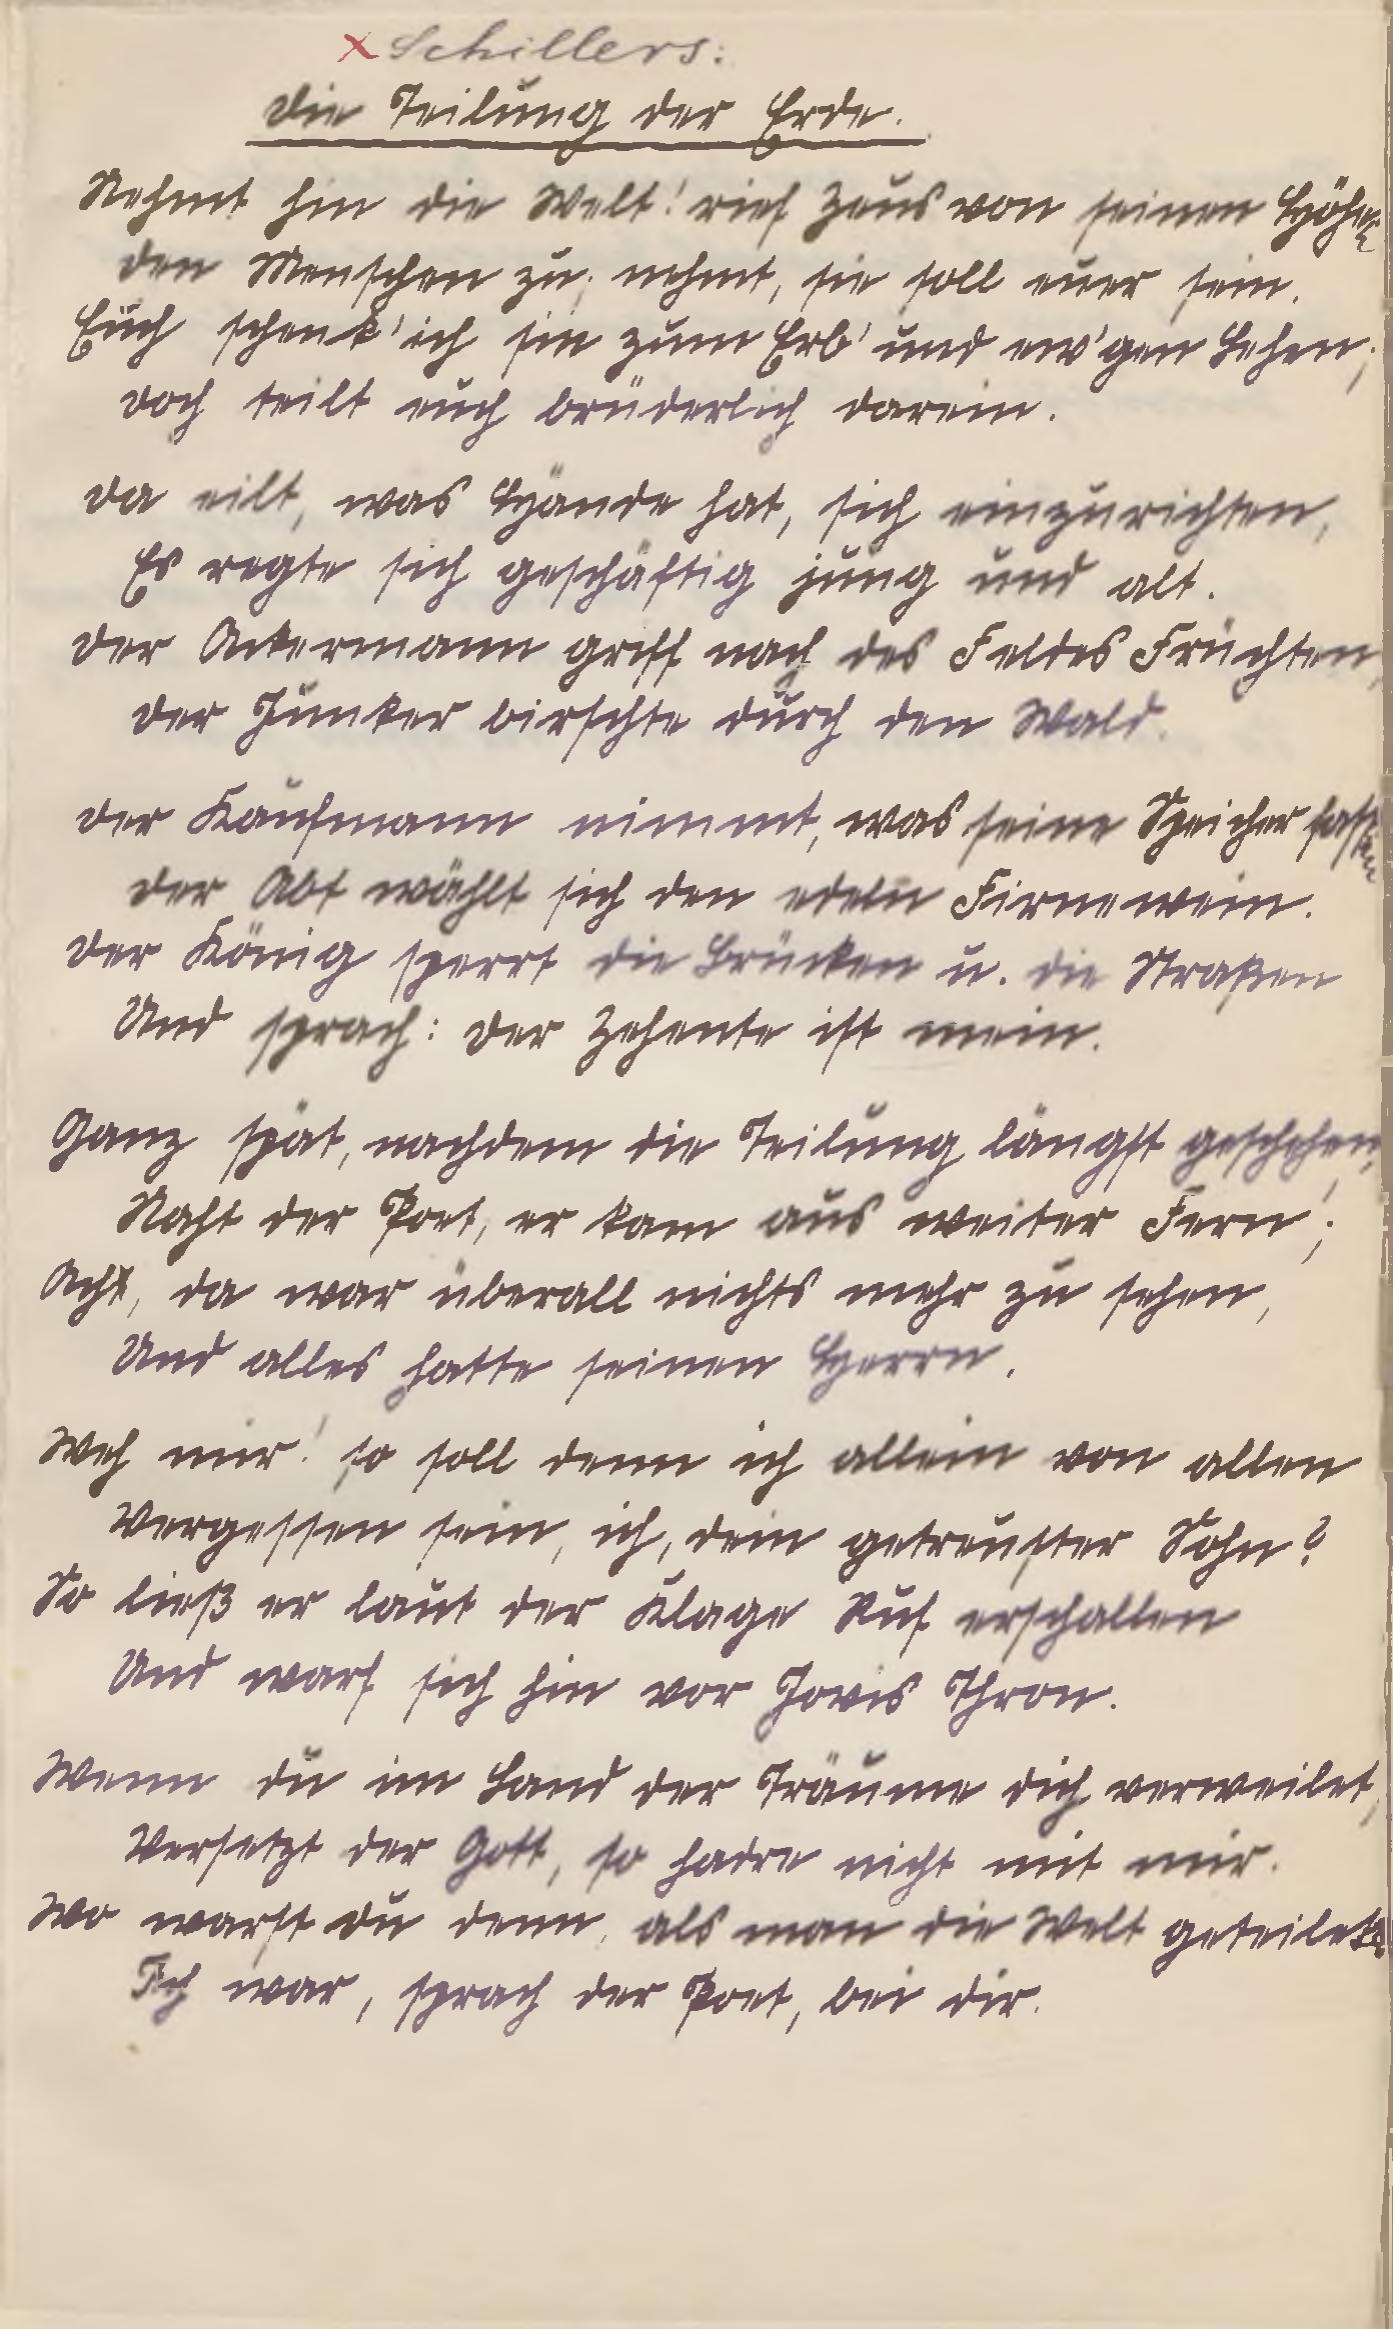 x Schillers:
Die Teilung der Erde.
Nehmt hin die Welt! rief Zeus von seinen Höhen
den Menschen zu; nehmt, sie soll euer sein.
Euch schenk' ich sie zum Erb' und ew'gen Lehen;
doch teilt euch brüderlich darein.
Da eilt, was Hände hat, sich einzurichten,
Es regte sich geschäftig jung und alt.
Der Ackermann griff nach des Feldes Früchten,
der Junker birschte durch den Wald.
Der Kaufmann nimmt, was seine Speicher fassen
der Abt wählt sich den edeln Firnewein.
Der König sperrt die Brücken u. die Straßen
Und sprach: der Zehente ist mein.
Ganz spät, nachdem die Teilung längst geschehen,
Naht der Poet, er kam aus weiter Fern';
Ach, da war überall nichts mehr zu sehen,
Und alles hatte seinen Herrn.
Weh mir! so soll denn ich allein von allen
Vergessen sein, ich, dein getreuster Sohn?
So ließ er laut der Klage Ruf erschallen
Und warf sich hin vor Jovis Thron.
Wenn du im Land der Träume dich verweilet,
Versetzt der Gott, so hadre nicht mit mir.
Wo warst du denn, als man die Welt geteilet?
Ich war, sprach der Poet, bei dir.